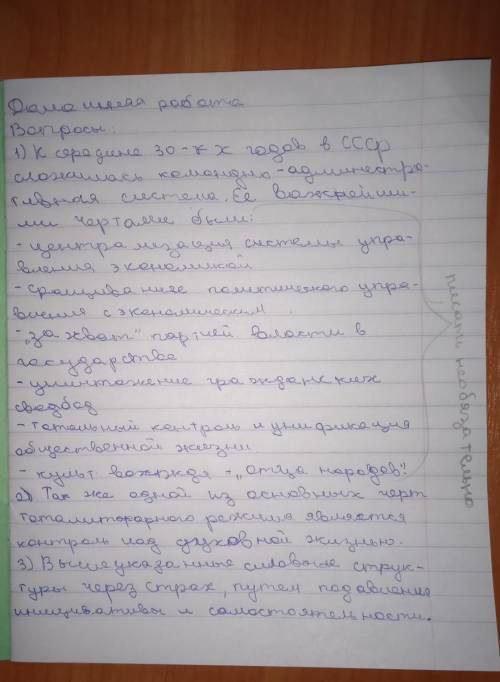 Домашняя работа
Вопросы:
1) К середине 30-х х годов в СССР
сложилась командно-админестра-
тивная система. Её важнейши-
ми чертами были:
- централизация системы упра-
вления экономикой
- сращивание политического упра-
вления с экономическим
- „захват" партией власти в
государстве
- уничтожение гражданских
свобод
- тотальный контроль и унификация
общественной жизни
- культ вождя - „отца народов".
2) Так же одной из основных черт
тоталитарного режима является
контроль над духовной жизнью.
3) Вышеуказанные силовые струк-
туры через страх, путем подавления
инициативы и самостоятельности.
писать необязательно